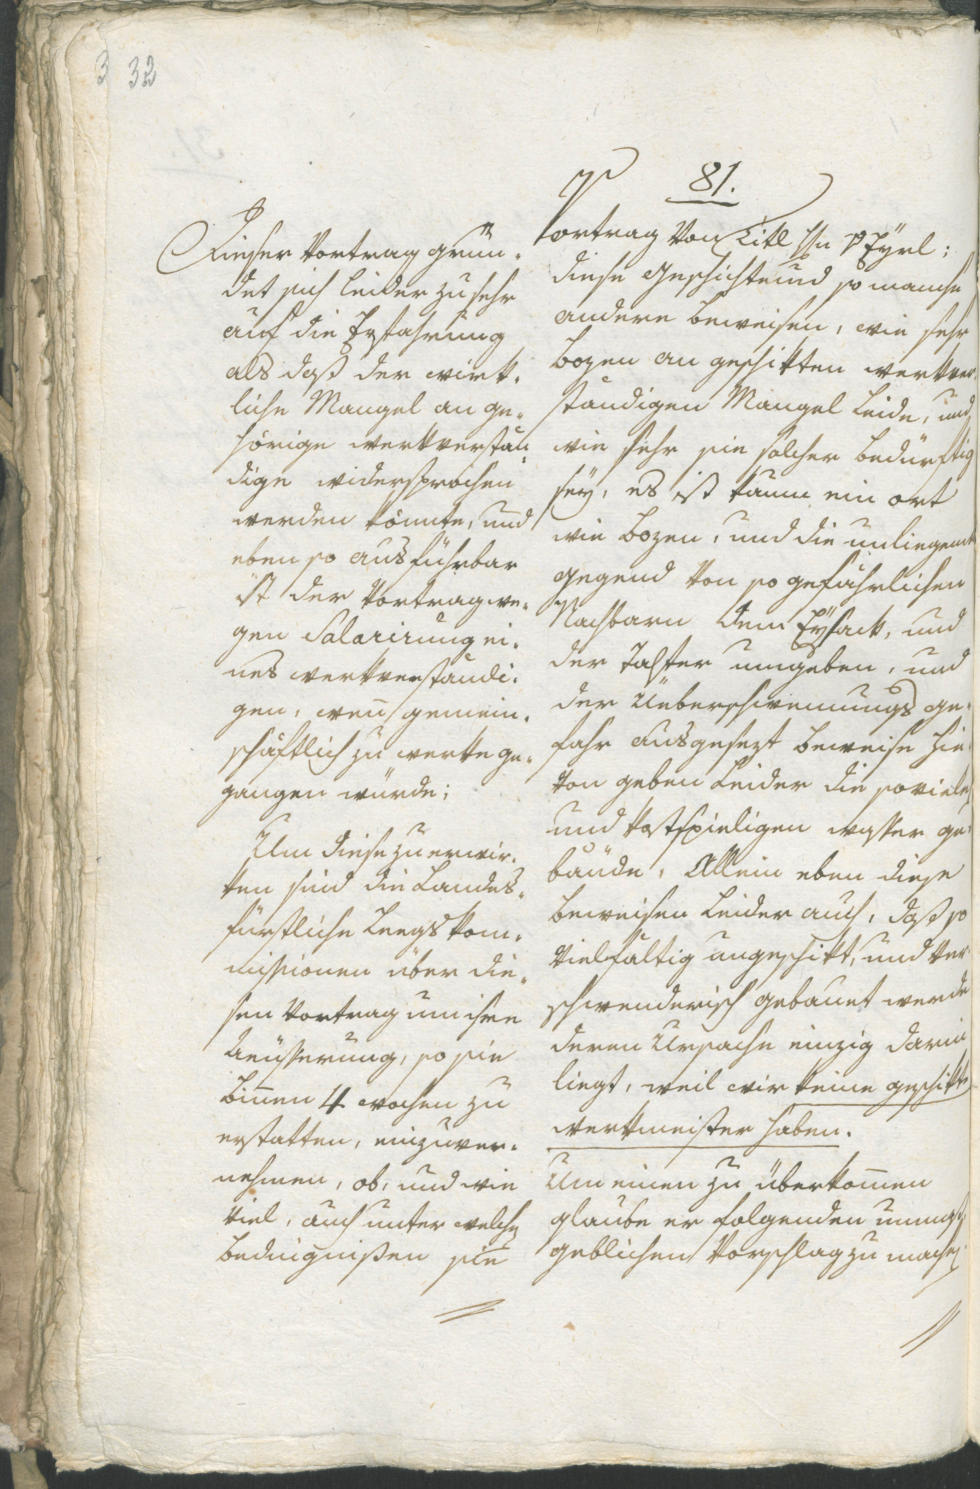 32
81.
Dieser Vortrag grün-
det sich leider zu sehr
auf die Erfahrung
als daß der wirk-
liche Mangel an ge-
hörige werkverstän
dige widersprochen
werden könnte, und
eben so ausführbar
ist der Vortrag we-
gen Salarirung ei-
nes werkverständi-
gen, wen̄ gemein-
schäftlich zu werke ge-
gangen würde;
Um diese zu erwir-
ken sind die Landes-
fürstliche Leegs kom-
missionen über die-
sen Vortrag um ihre
Aeüsserung, so sie
binnen 4 wochen zu
erstatten, einzuver-
nehmen, ob, und wie
viel, auch unter welchen
bedingnißen sie
Vortrag von Titl Hn v Eyrl:
diese Geschichte und so manche
andere beweisen, wie sehr
Bozen an geschikten werkver
ständigen Mangel leide, und
wie sehr sie solcher bedürftig
sey, es ist kaum ein ort
wie Bozen, und die umliegende
gegend von so gefährlichen
Nachbarn dem Eysack, und
der Talfer umgeben, und
der Ueberschwemmungs ge-
fahr ausgesezt beweise hie-
von geben leider die so viele
und kostspieligen wasser ge-
bäude, Allein eben diese
beweisen leider auch, daß so
vielfältig ungeschikt, und ver
schwenderisch gebauet werde
deren Ursache einzig darin
liegt, weil wir keine geschikte
werkmeister haben.
Um einen zu überkom̄en
glaube er folgenden unmaß
geblichen Vorschlag zu machen